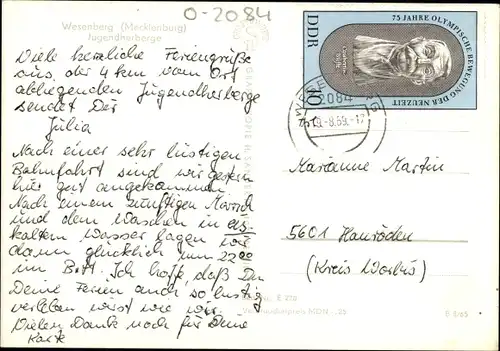 O-2084
Wesenberg (Mecklenburg)
Jugendherberge
Viele herzliche Feriengrüße
aus der 4 km vom Ort
abliegenden Jugendherberge
sendet Dir
Julia
Nach einer sehr lustigen
Bahnfahrt sind wir gestern
hier gut angekommen.
Nach einem zünftigen Marsch
und dem Waschen in eis-
kaltem Wasser lagen wir
dann glücklich um 22.00
im Bett. Ich hoffe, daß Du
Deine Ferien auch so lustig
verleben wirst wie wir.
Vielen Dank noch für Deine
Karte
75 JAHRE OLYMPISCHE BEWEGUNG DER NEUZEIT
DDR
10
2084
-8.69.-12
Marianne Martin
5601 Hausröden
(Kreis Worbis)
E 279
MDN -,25